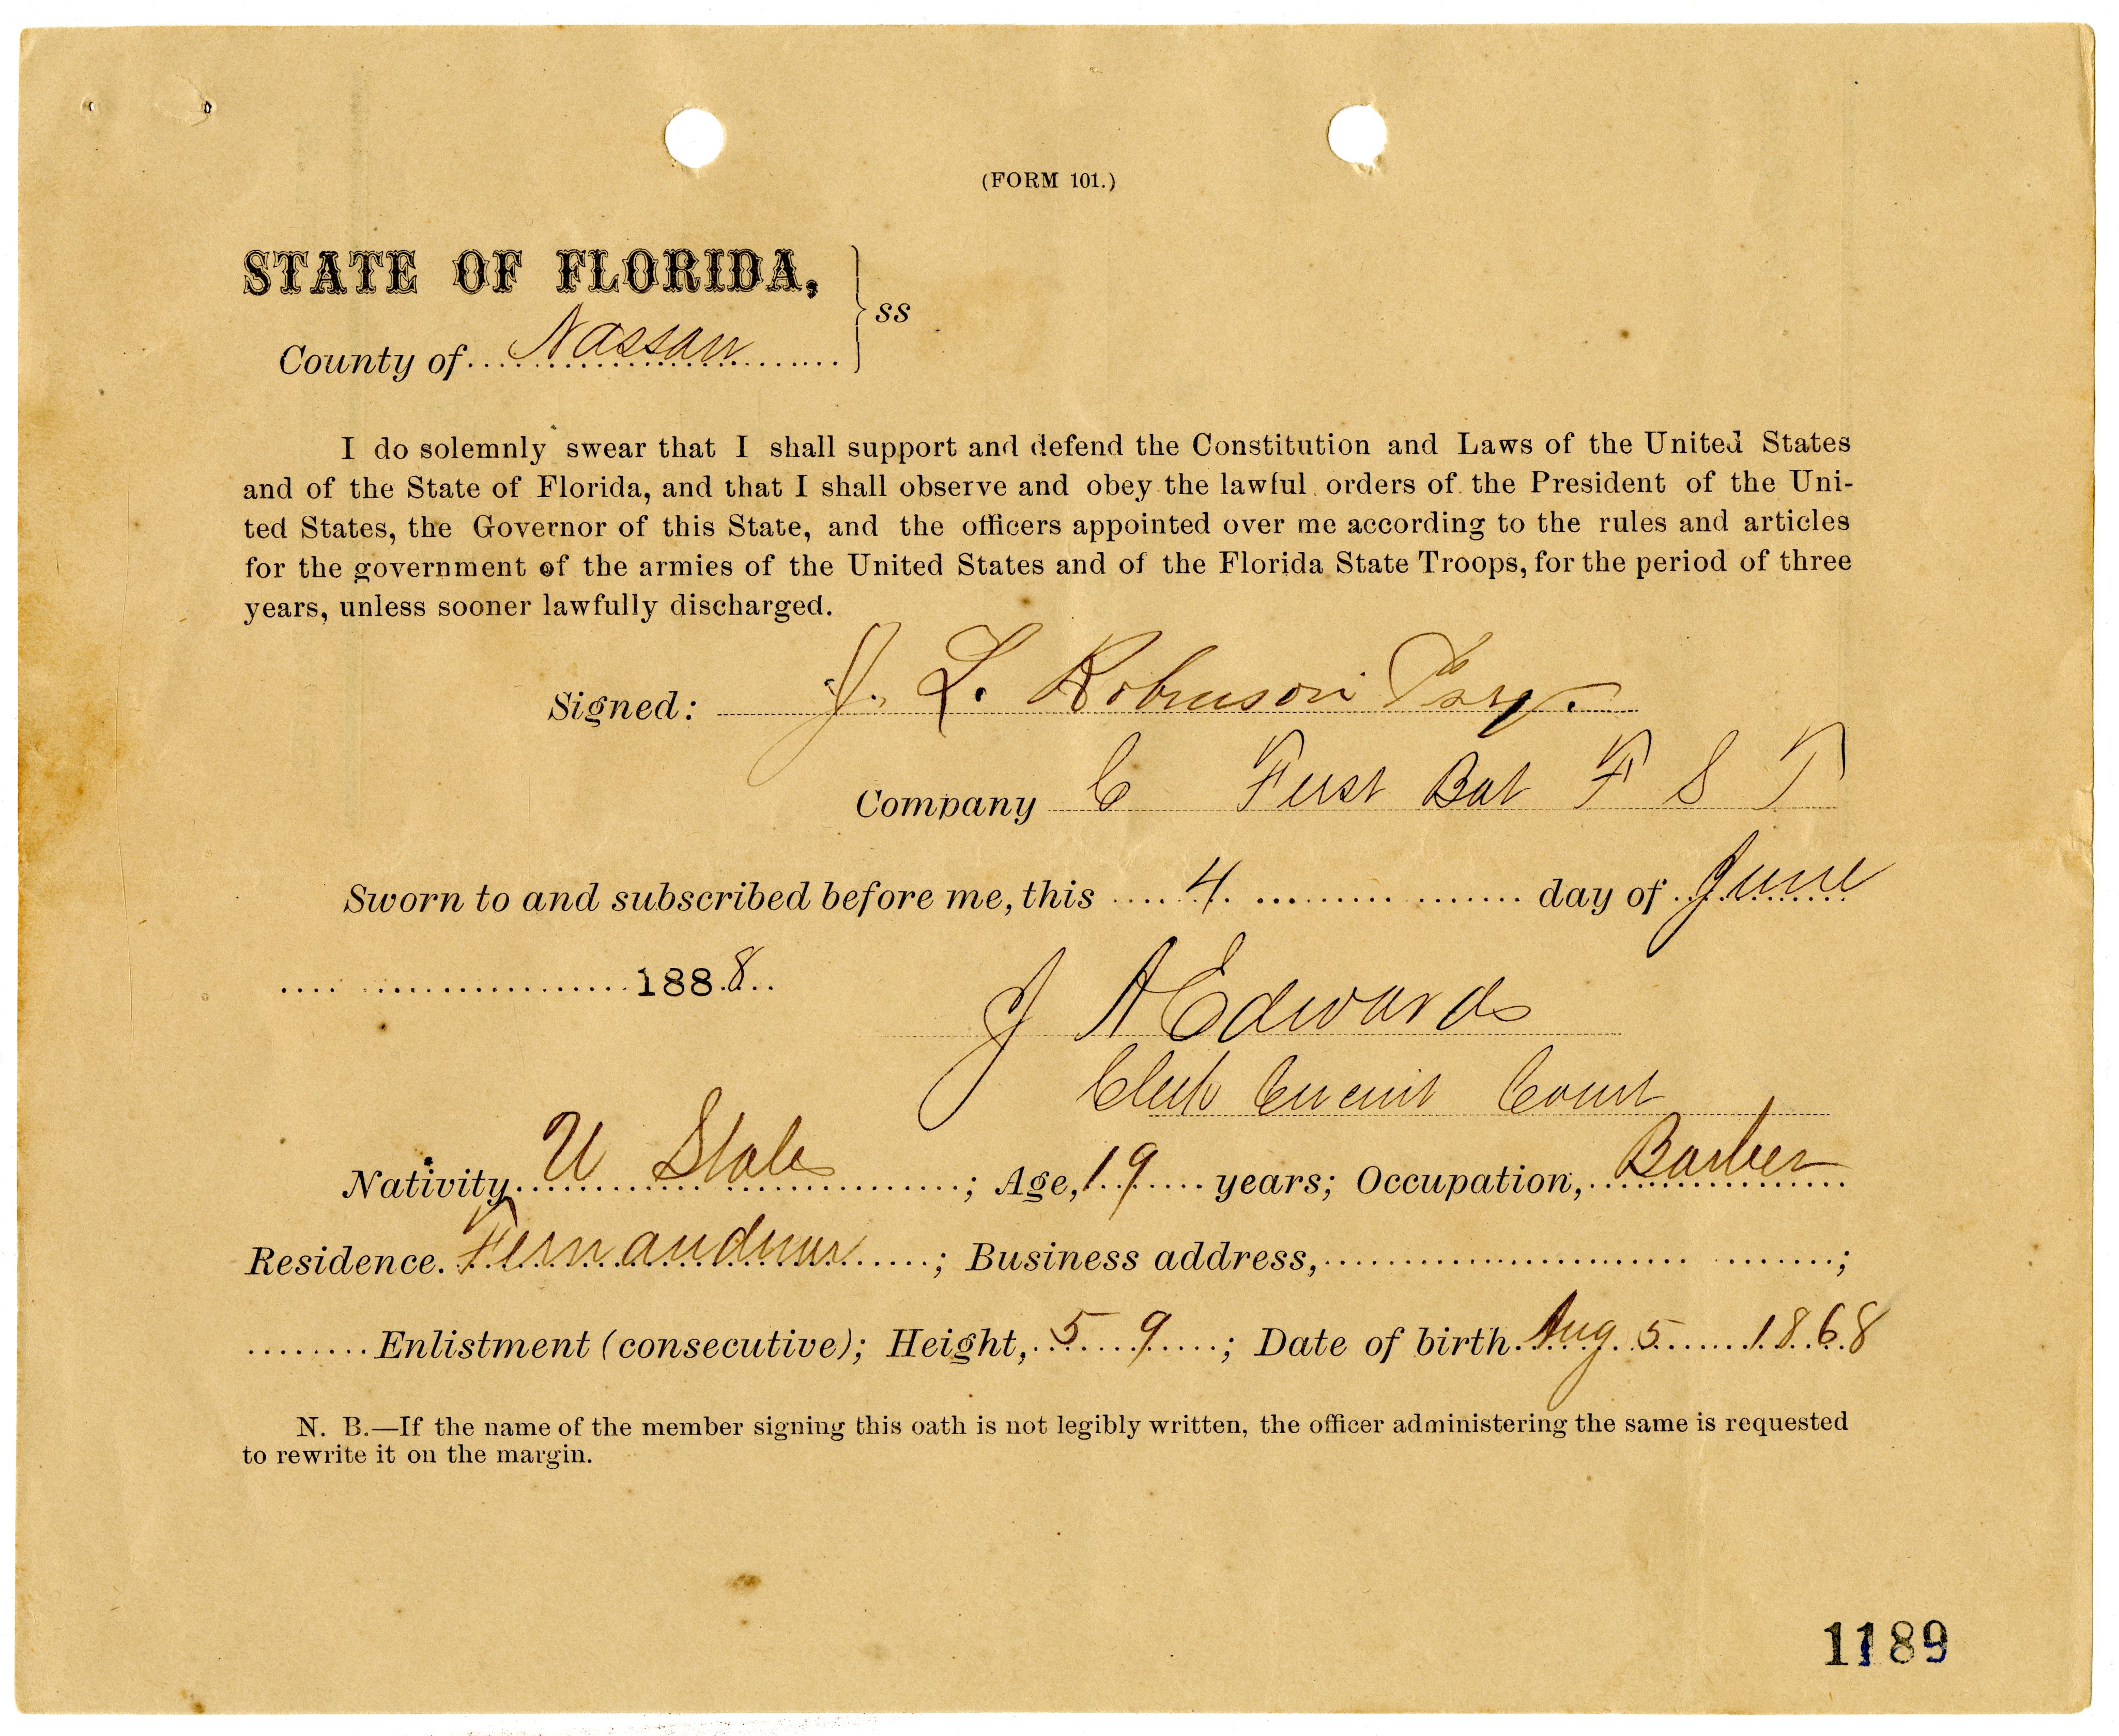 (FORM 101.)
STATE OF FLORIDA,
ss
County of Nassau
I do solemnly swear that I shall support and defend the Constitution and Laws of the United States
and of the State of Florida, and that I shall observe and obey the lawful orders of the President of the Uni-
ted States, the Governor of this State, and the officers appointed over me according to the rules and articles
for the government of the armies of the United States and of the Florida State Troops, for the period of three
years, unless sooner lawfully discharged.
Signed: J. L. Robinson
Company C First Bat F S T
Sworn to and subscribed before me, this 4 day of June
1888
J A Edwards
Clerk Circuit Court
Nativity U States; Age, 19 years; Occupation, Barber
Residence. Fernandina; Business address, ;
Enlistment (consecutive); Height, 5 9; Date of birth. Aug 5 1868
N. B.—If the name of the member signing this oath is not legibly written, the officer administering the same is requested
to rewrite it on the margin.
1189